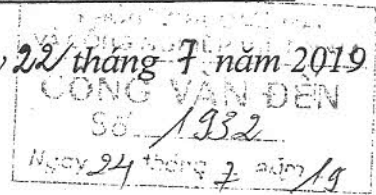 , 22 tháng 7 năm 2019
CÔNG VĂN ĐẾN
Số 1932
Ngày 24 tháng 7 năm 19